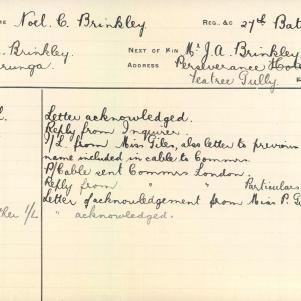 Noel. C. Brinkley. Reg. &c 27th Bat
. Brinkley. Next of Kin Mr J. A. Brinkley.
runga. Address Perseverance Hote
Teatree Gully
Letter acknowledged.
Reply from Inquirer.
I/L. from Miss Giles, also letter to previous
name included in cable to Commrs.
P/Cable sent Commrs London.
Reply from " " Particulars
Letter of acknowledgement from Miss P. G
ther I/L " acknowledged.